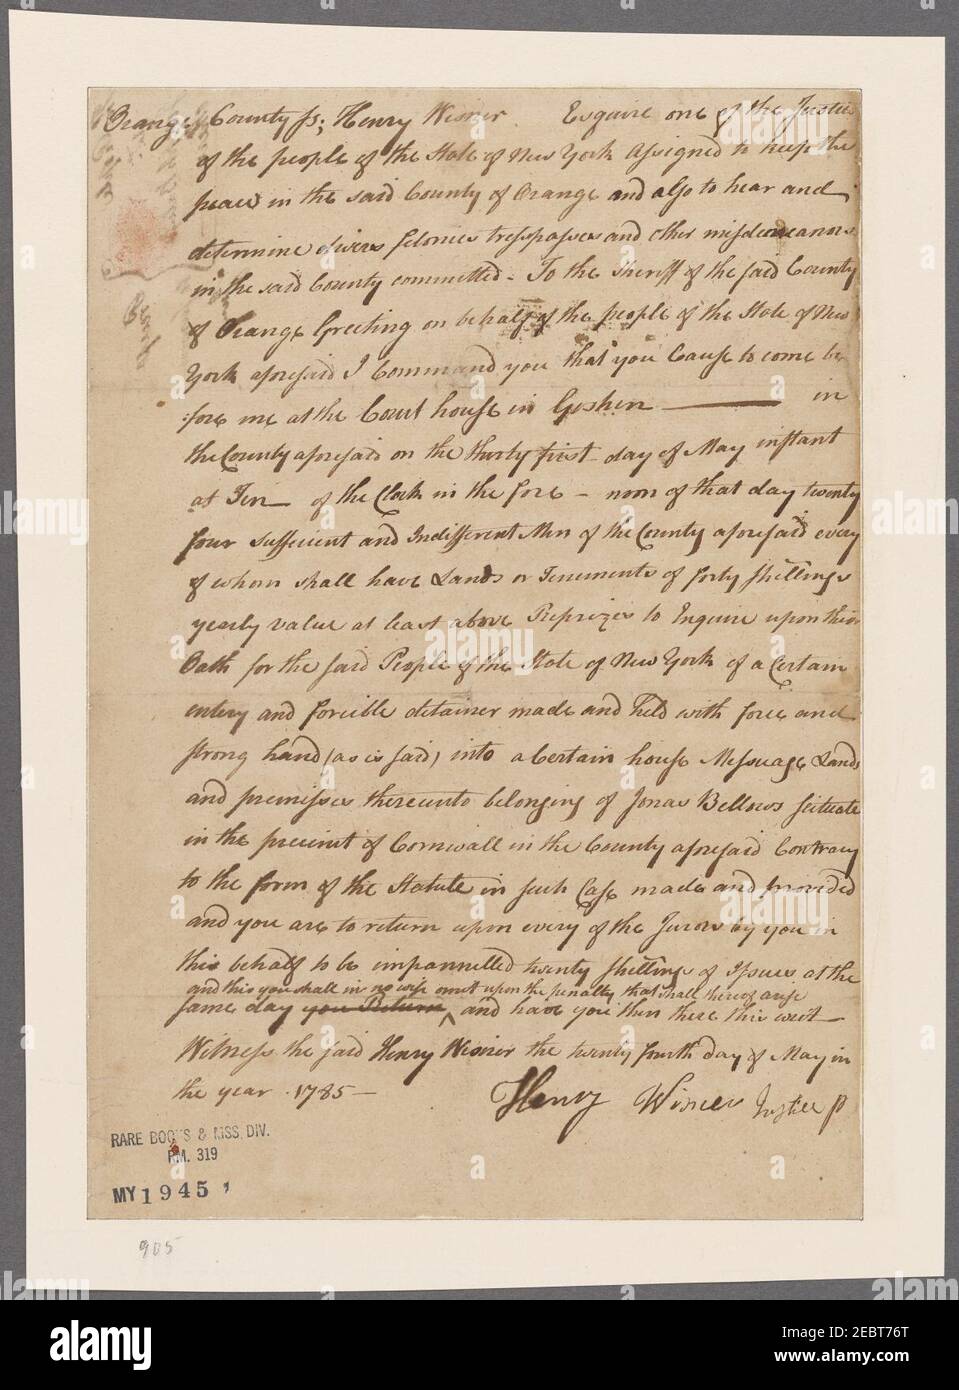 Orange County ss; Henry Wisner Esquire one of the Justices
of the people of the State of New York Assigned to keep the
peace in the said County of Orange and also to hear and
determine divers felonies trespasses and other misdemeanors
in the said County committed - To the Sheriff of the said County
of Orange Greeting on behalf of the people of the State of New
York aforesaid I Command you that you Cause to come be
:fore me at the Court house in Goshen ——— in
the County aforesaid on the thirty first day of May instant
at Ten — of the Clock in the fore - noon of that day twenty
four sufficient and Indifferent Men of the County aforesaid every
of whom shall have Lands or Tenements of forty shillings
yearly value at least above Reprizes to Enquire upon their
Oath for the said People of the State of New York of a Certain
entery and forcible detainer made and held with force and
strong hand (as is said) into a Certain house Messuage Lands
and premisses thereunto belonging of Jonas Bellows scituate
in the precinct of Cornwall in the County aforesaid Contrary
to the form of the Statute in such Case made and provided
and you are to return upon every of the Jurors by you in
this behalf to be impannelled twenty shillings of Issues at the
and this you shall in no wise omit upon the penalty that shall thereof arise
same day you Return ^ and have you then there this writ —
Witness the said Henry Wisner the twenty fourth day of May in
the year . 1785 —
Henry Wisner Justice p
RARE BOOKS & MSS. DIV.
RM. 319
MY 1945
905
alamy
Image ID: 2EBT76T
www.alamy.com